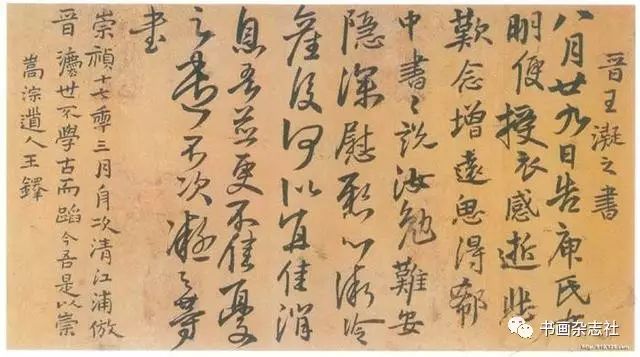 晉王凝之書
八月廿九日告庾氏女
明便授衣感逝悲
歎念增遠思得郗
中書〻說汝勉難安
隱深慰懸心漸冷
產後何似宜佳消
息吾並更不佳憂
之遣不次凝之等
書
崇禎十七季三月舟次清江浦倣
晉澆世不學古而蹈今吾是以崇
嵩淙遺人王鐸
书画杂志社